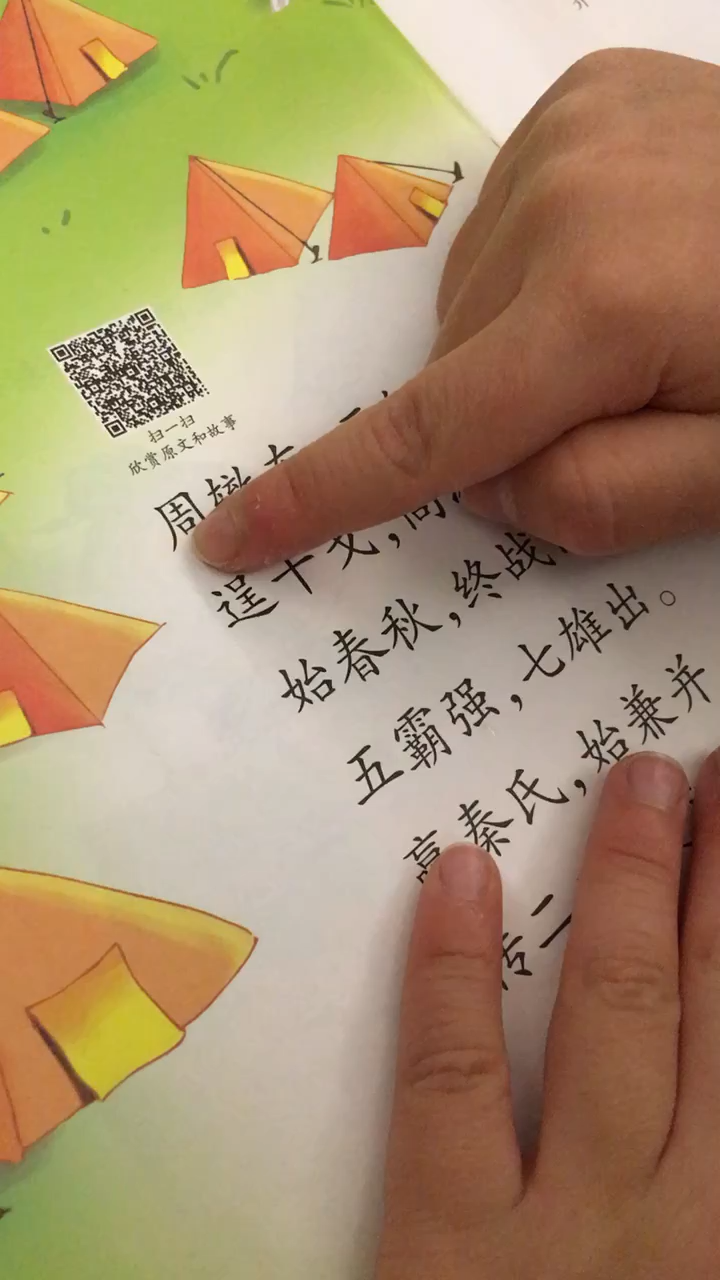 扫一扫
欣赏原文和故事
周辙
逞干戈,尚
始春秋,终战
五霸强,七雄出。
秦氏,始兼并
传二